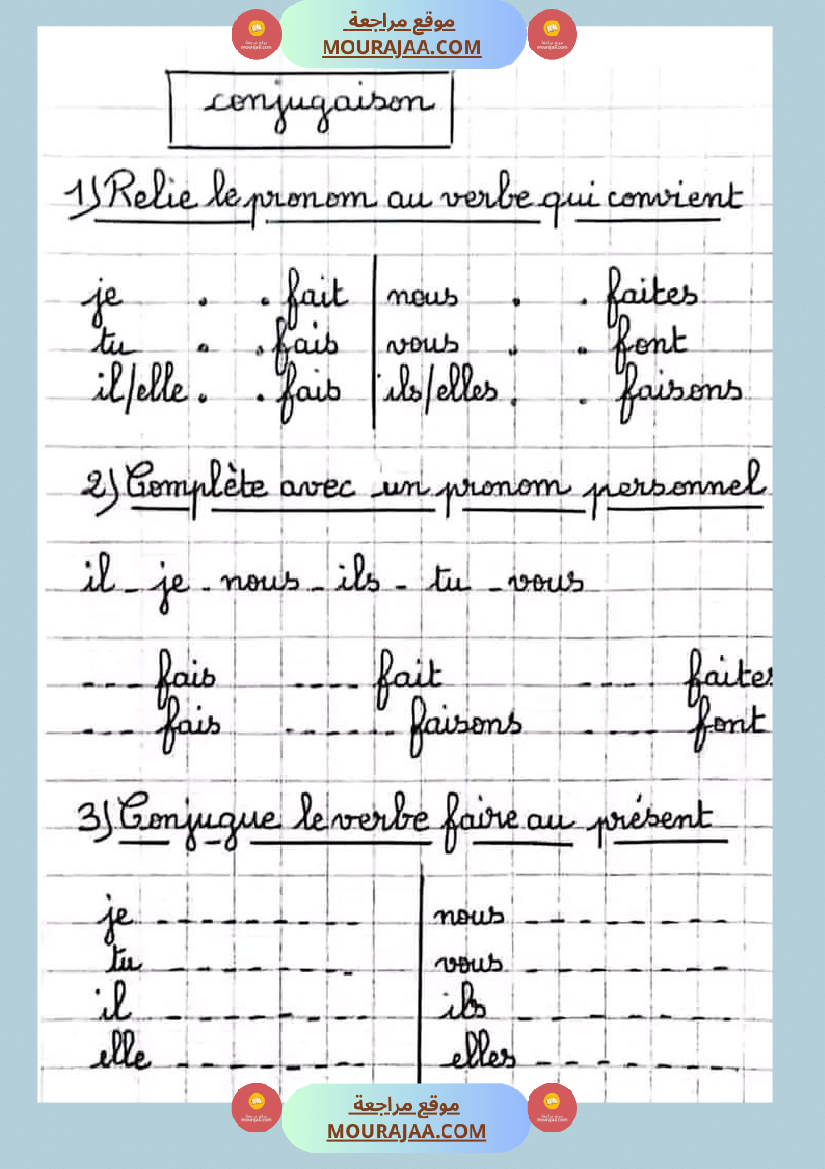 موقع مراجعة
MOURAJAA.COM
conjugaison
1) Relie le pronom au verbe qui convient
je . . fait | nous . . faites
tu . . fais | vous . . font
il/elle . . fais | ils/elles . . faisons
2) Complète avec un pronom personnel
il - je - nous - ils - tu - vous
---- fais ---- fait ---- faites
---- fais ------ faisons ---- font
3) Conjugue le verbe faire au présent
je --------- nous ---------
tu --------- vous ---------
il --------- ils ---------
elle --------- elles ---------
موقع مراجعة
MOURAJAA.COM